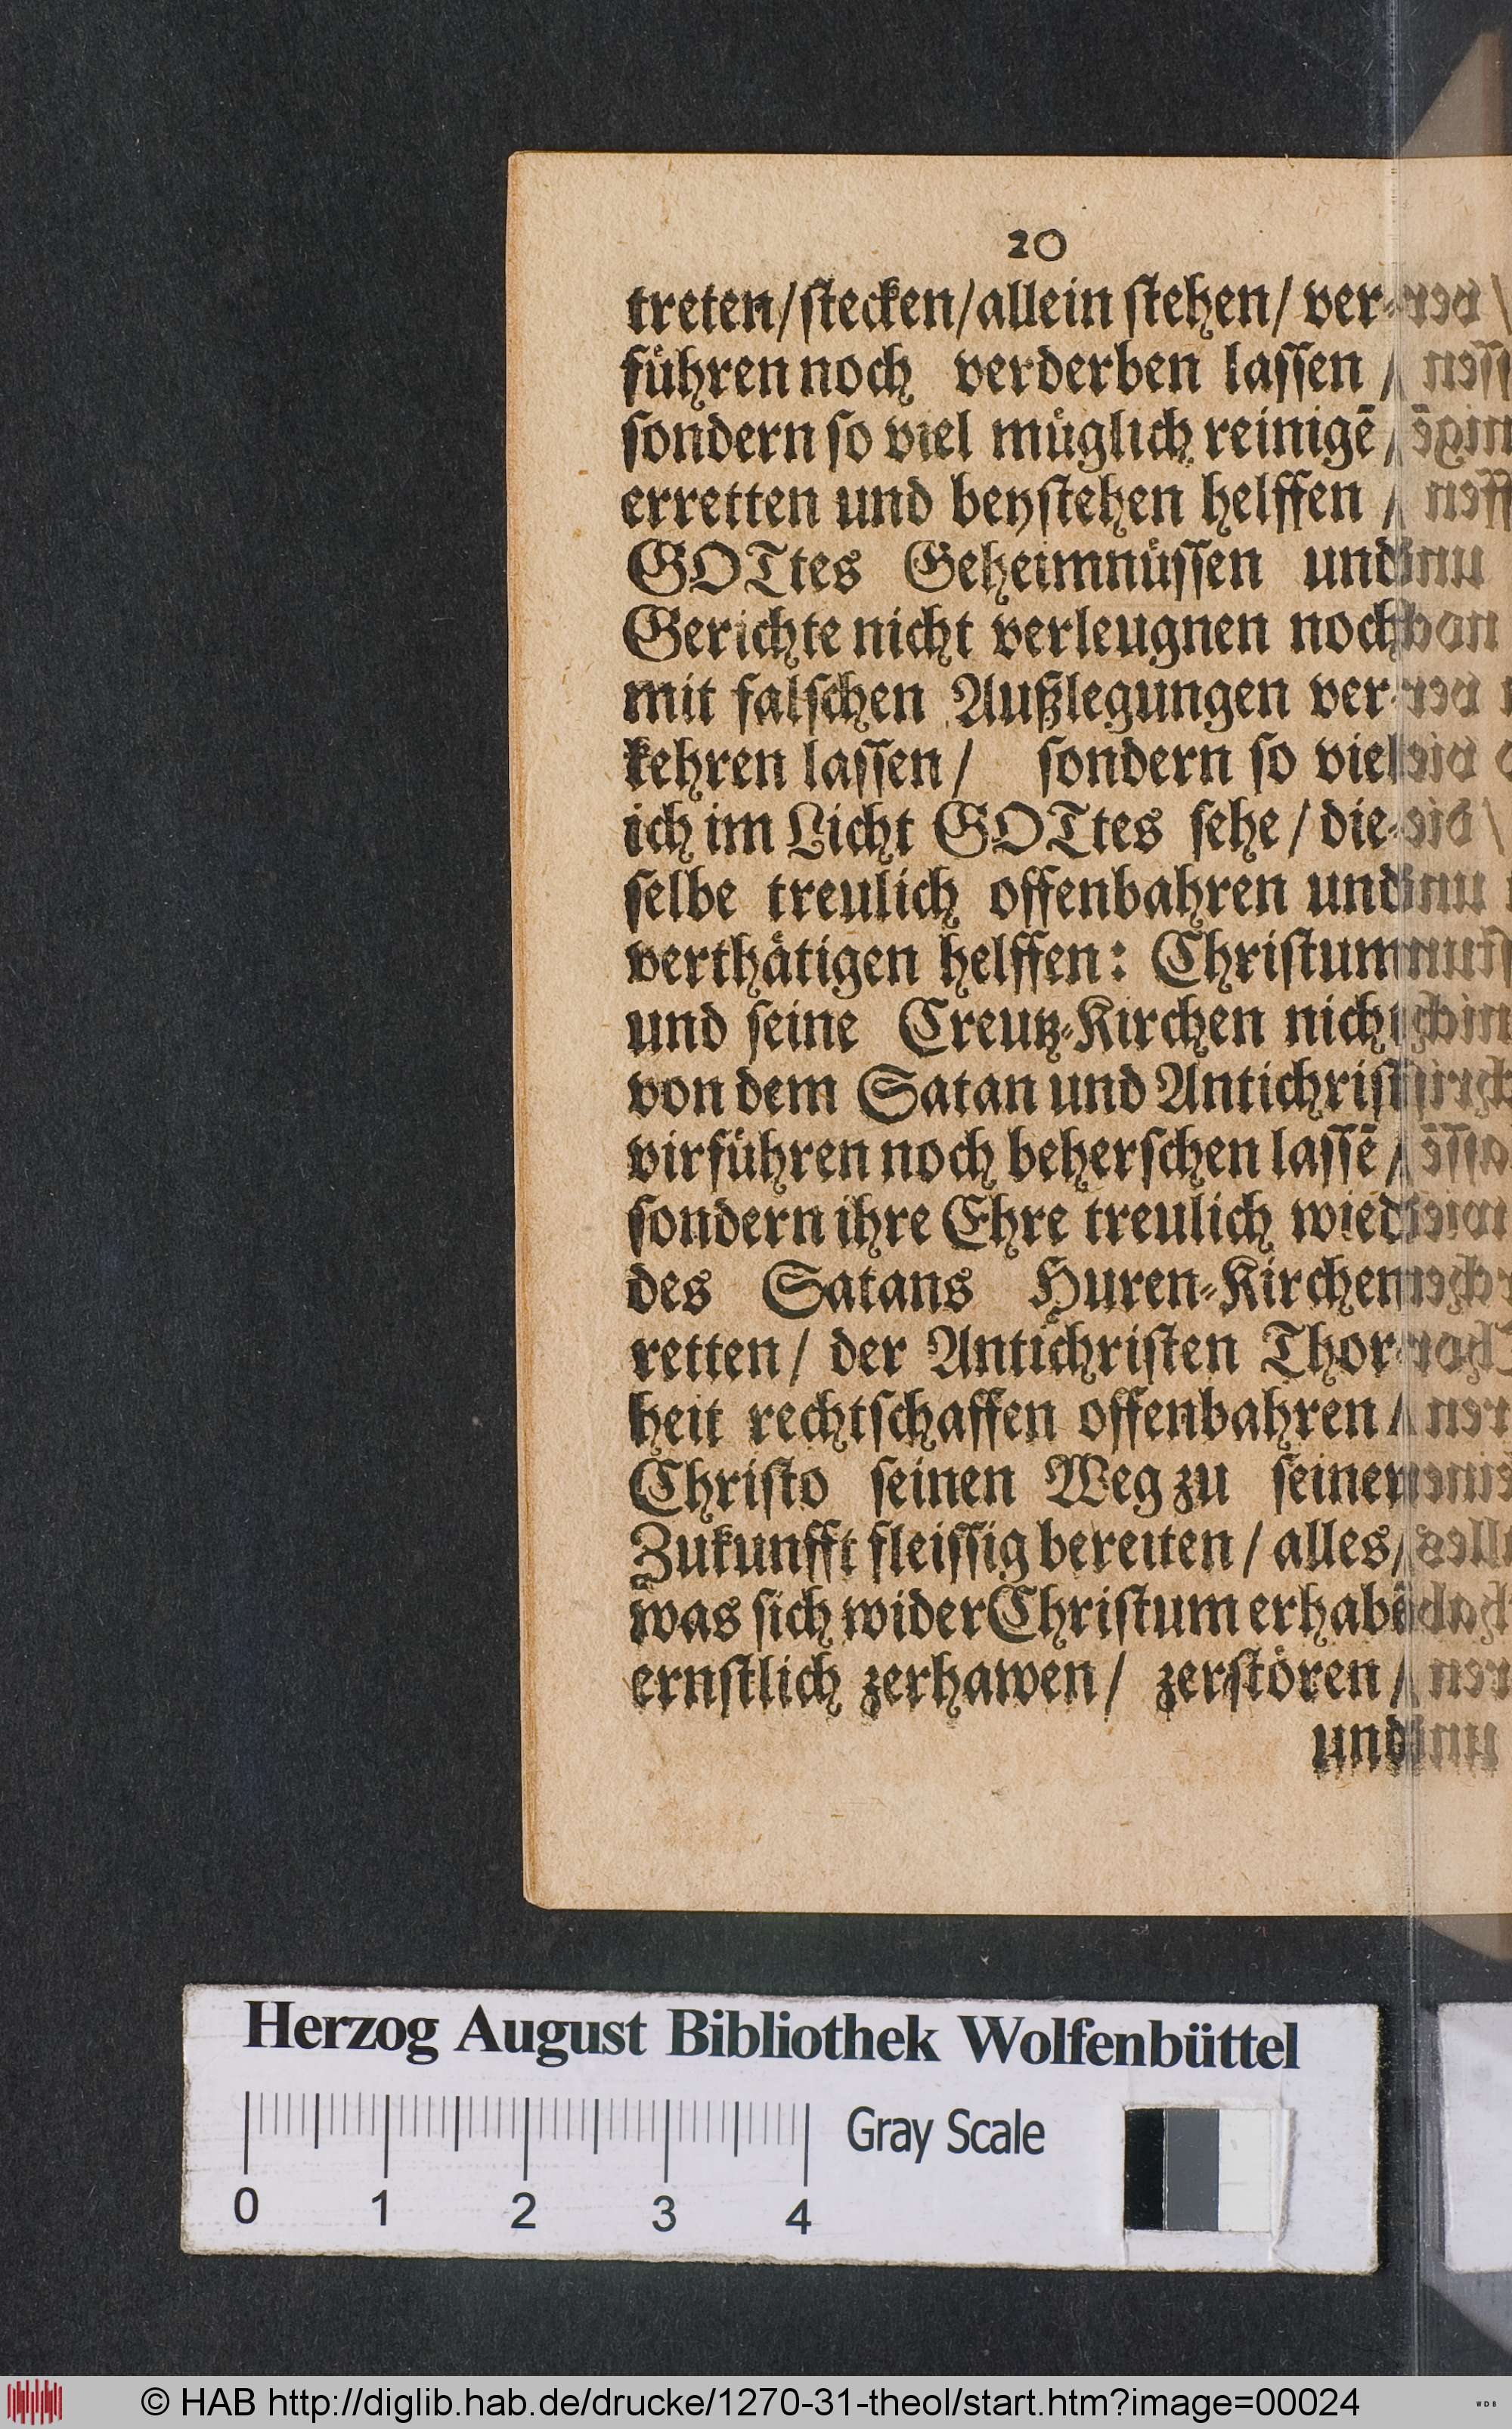 20
treten/stecken/allein stehen/ ver-
führen noch verderben lassen /
sondern so viel müglich reinigē/
erretten und beystehen helffen /
GOTtes Geheimnüssen und
Gerichte nicht verleugnen noch
mit falschen Außlegungen ver-
kehren lassen/ sondern so viel
ich im Licht GOTtes sehe / die-
selbe treulich offenbahren und
verthätigen helffen: Christum
und seine Creutz-Kirchen nicht
von dem Satan und Antichrist
virführen noch beherschen lassē/
sondern ihre Ehre treulich wied
des Satans Huren-Kirchen
retten/ der Antichristen Thor-
heit rechtschaffen offenbahren /
Christo seinen Weg zu seiner
Zukunfft fleissig bereiten / alles/
was sich wider Christum erhabē
ernstlich zerhawen/ zerstören /
und
Herzog August Bibliothek Wolfenbüttel
Gray Scale
0 1 2 3 4
© HAB http://diglib.hab.de/drucke/1270-31-theol/start.htm?image=00024
WDB